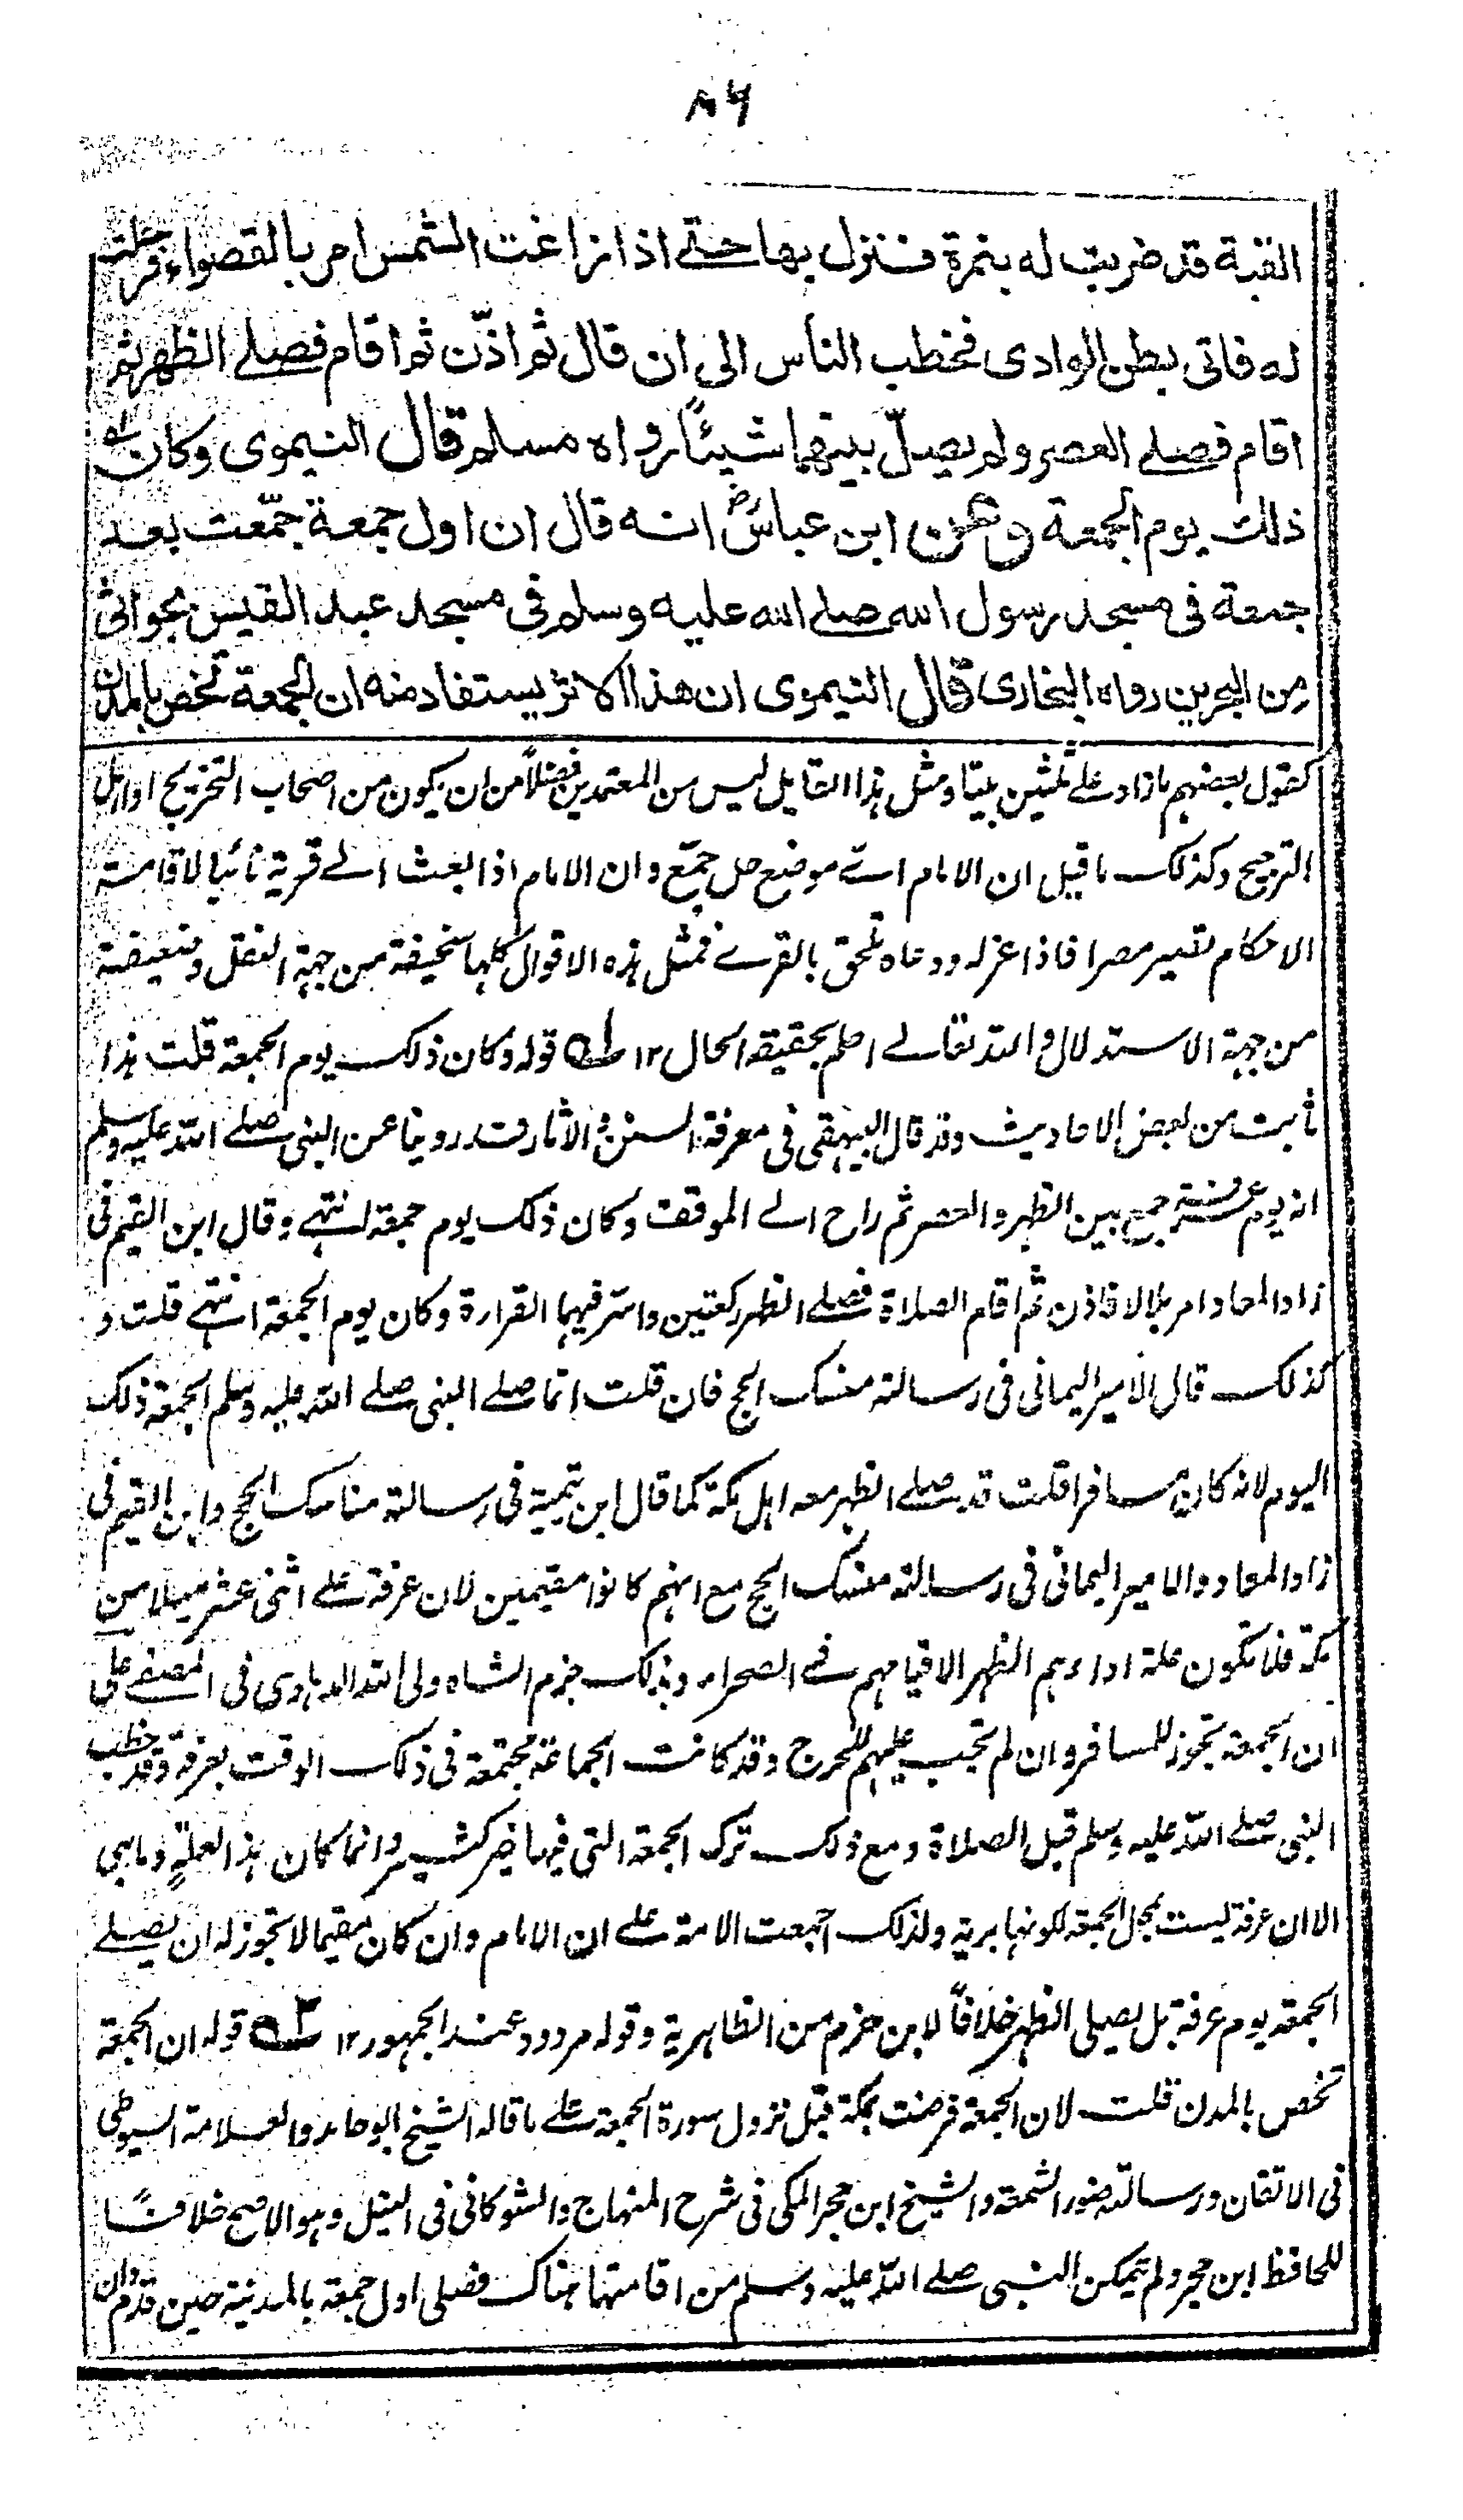 ٨٦
القبة قد ضربت له بنمرة فنزل بها حتى اذا زاغت الشمس امر بالقصواء فرحلت
له فاتى بطن الوادى فخطب الناس الى ان قال ثم اذّن ثم اقام فصلى الظهر ثم
اقام فصلى العصر ولم يصلّ بينهما شيئاً رواه مسلم قال النيموى وكان
ذلك يوم الجمعة وعن ابن عباسؓ انه قال ان اول جمعة جمّعت بعد
جمعة فى مسجد رسول الله صلى الله عليه وسلم فى مسجد عبد القيس بجواثى
من البحرين رواه البخارى قال النيموى ان هذا الاثر يستفاد منه ان الجمعة تخص بالمدن
كقول بعضهم ما زاد على ثلثين بيتا ومثل هذا القايل ليس من المعتمدين فضلاً من ان يكون من اصحاب التخريج او اهل
الترجيح وكذلك ما قيل ان الامام اى موضع حل جمّع وان الامام اذا بعث الى قرية نائبا لاقامة
الاحكام تصير مصرا فاذا عزله ودعاه تلحق بالقرى فمثل هذه الاقوال كلها سخيفة من جهة النقل وضعيفة
من جهة الاستدلال والله تعالى اعلم بحقيقة الحال ١٢ ـه١ قوله وكان ذلك يوم الجمعة قلت هذا
ثابت من بعض الاحاديث وقد قال البيهقى فى معرفة السنن والاثار قد روينا عن النبى صلى الله عليه وسلم
انه يوم عرفة جمع بين الظهر والعصر ثم راح الى الموقف وكان ذلك يوم جمعة انتهى وقال ابن القيم فى
زاد المعاد امر بلالا فاذن ثم اقام الصلاة فصلى الظهر ركعتين واسر فيهما القراءة وكان يوم الجمعة انتهى قلت و
كذلك قال الامير اليمانى فى رسالة منسك الحج فان قلت انما صلى النبى صلى الله عليه وسلم الجمعة ذلك
اليوم لانه كان مسافرا قلت قد صلى الظهر معه اهل مكة كما قال ابن تيمية فى رسالة مناسك الحج وابن القيم فى
زاد المعاد والامير اليمانى فى رسالة منسك الحج مع انهم كانوا مقيمين لان عرفة على اثنى عشر ميلا من
مكة فلا تكون علة اداءهم الظهر الا قيامهم فى الصحراء وبذلك جزم الشاه ولى الله الدهلوى فى المصفى على
ان الجمعة تجوز للمسافر وان لم تجب عليهم للحرج وقد كانت الجماعة مجتمعة فى ذلك الوقت بعرفة وقد خطب
النبى صلى الله عليه وسلم قبل الصلاة ومع ذلك ترك الجمعة التى فيها خير كثير وانما كان هذا لعلةٍ وما هى
الا ان عرفة ليست بمحل الجمعة لكونها برية ولذلك اجمعت الامة على ان الامام وان كان مقيما لا تجوز له ان يصلى
الجمعة يوم عرفة بل يصلى الظهر خلافاً لابن حزم من الظاهرية وقوله مردود عند الجمهور ١٢ ـه٢ قوله ان الجمعة
تخص بالمدن قلت لان الجمعة فرضت بمكة قبل نزول سورة الجمعة على ما قاله الشيخ ابو حامد والعلامة السيوطى
فى الاتقان ورسالته ضوء الشمعة والشيخ ابن حجر المكى فى شرح المنهاج والشوكانى فى النيل وهو الاصح خلافًا
للحافظ ابن حجر ولم يتمكن النبى صلى الله عليه وسلم من اقامتها هناك فصلى اول جمعة بالمدينة حين قدم وان